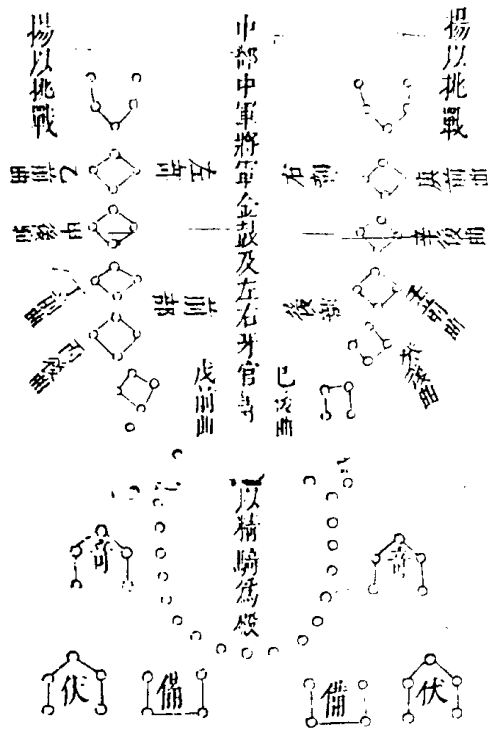 揚以挑戰
庚前曲
辛後曲
壬前曲
癸後曲
右部
後部
中部中軍將軍金鼓及左右牙官
己後曲
戊前曲
左部
前部
揚以挑戰
乙前曲
甲後曲
丁前曲
丙後曲
以精騎為殿
奇
奇
伏
備
備
伏